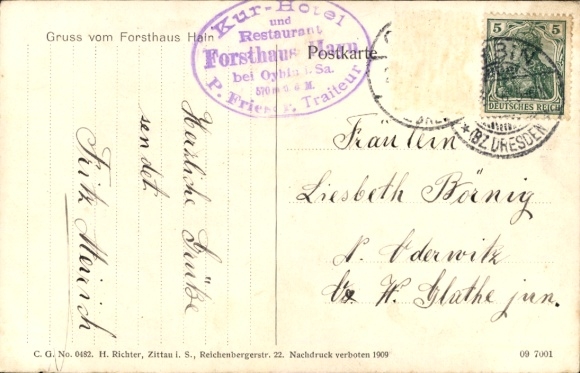 Gruss vom Forsthaus Hain
Kur-Hotel
und
Restaurant
Forsthaus Hain
bei Oybin i. Sa.
570 m ü. M.
Traiteur
Postkarte
5 5
DEUTSCHES REICH
(BZ. DRESDEN)
Herzliche Grüße
sendet
Fritz
Fräulein
Liesbeth Börnig
N. Oderwitz
W. Glathe jun.
C. G. No. 0482. H. Richter, Zittau i. S., Reichenbergerstr. 22. Nachdruck verboten 1909
09 7001